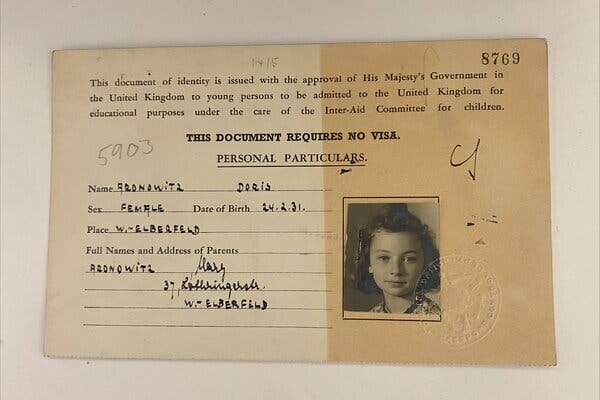 8769
This document of identity is issued with the approval of His Majesty's Government in
the United Kingdom to young persons to be admitted to the United Kingdom for
educational purposes under the care of the Inter-Aid Committee for children.
THIS DOCUMENT REQUIRES NO VISA.
5903
PERSONAL PARTICULARS.
Name ARONOWITZ DORIS
Sex FEMALE Date of Birth 24.2.31.
Place W.-ELBERFELD
Full Names and Address of Parents
ARONOWITZ Mary
37, Lothringerstr.
W.-ELBERFELD